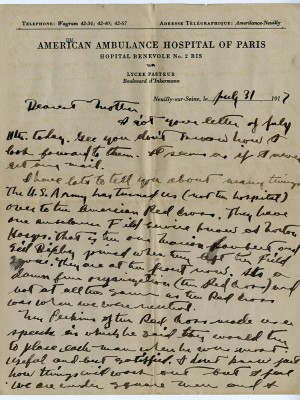 TELEPHONE: Wagram 42-54; 42-40; 42-67 ADRESSE TÉLÉGRAPHIQUE: Amerilance-Neuilly
AMERICAN AMBULANCE HOSPITAL OF PARIS
HOPITAL BENEVOLE No. 2 BIS
LYCEE PASTEUR
Boulevard d'Inkermann
Neuilly-sur-Seine, le July 31 1917
Dearest Mother
I got your letter of July
11th. today. Gee you don't know how I
look forward to them. It seems as if I never
get any mail.
I have lots to tell you about many things
The U.S. Army has turned us (not the hospital)
over to the American Red Cross. They have
one ambulance Field service know as Norton
Harjes. That is the one Marion and
Ed joined when they left the Field
Service. They are at the front now. Its a
damn fine organization (the Red Cross) and
not at all the same as the Red Cross
was when we were
Mr Perkins of the Red Cross made us a
speech in which he said they would try
to place each man where he was most
useful and but satisfied. I don't know just
how things will work out but I feel
we are under men and I